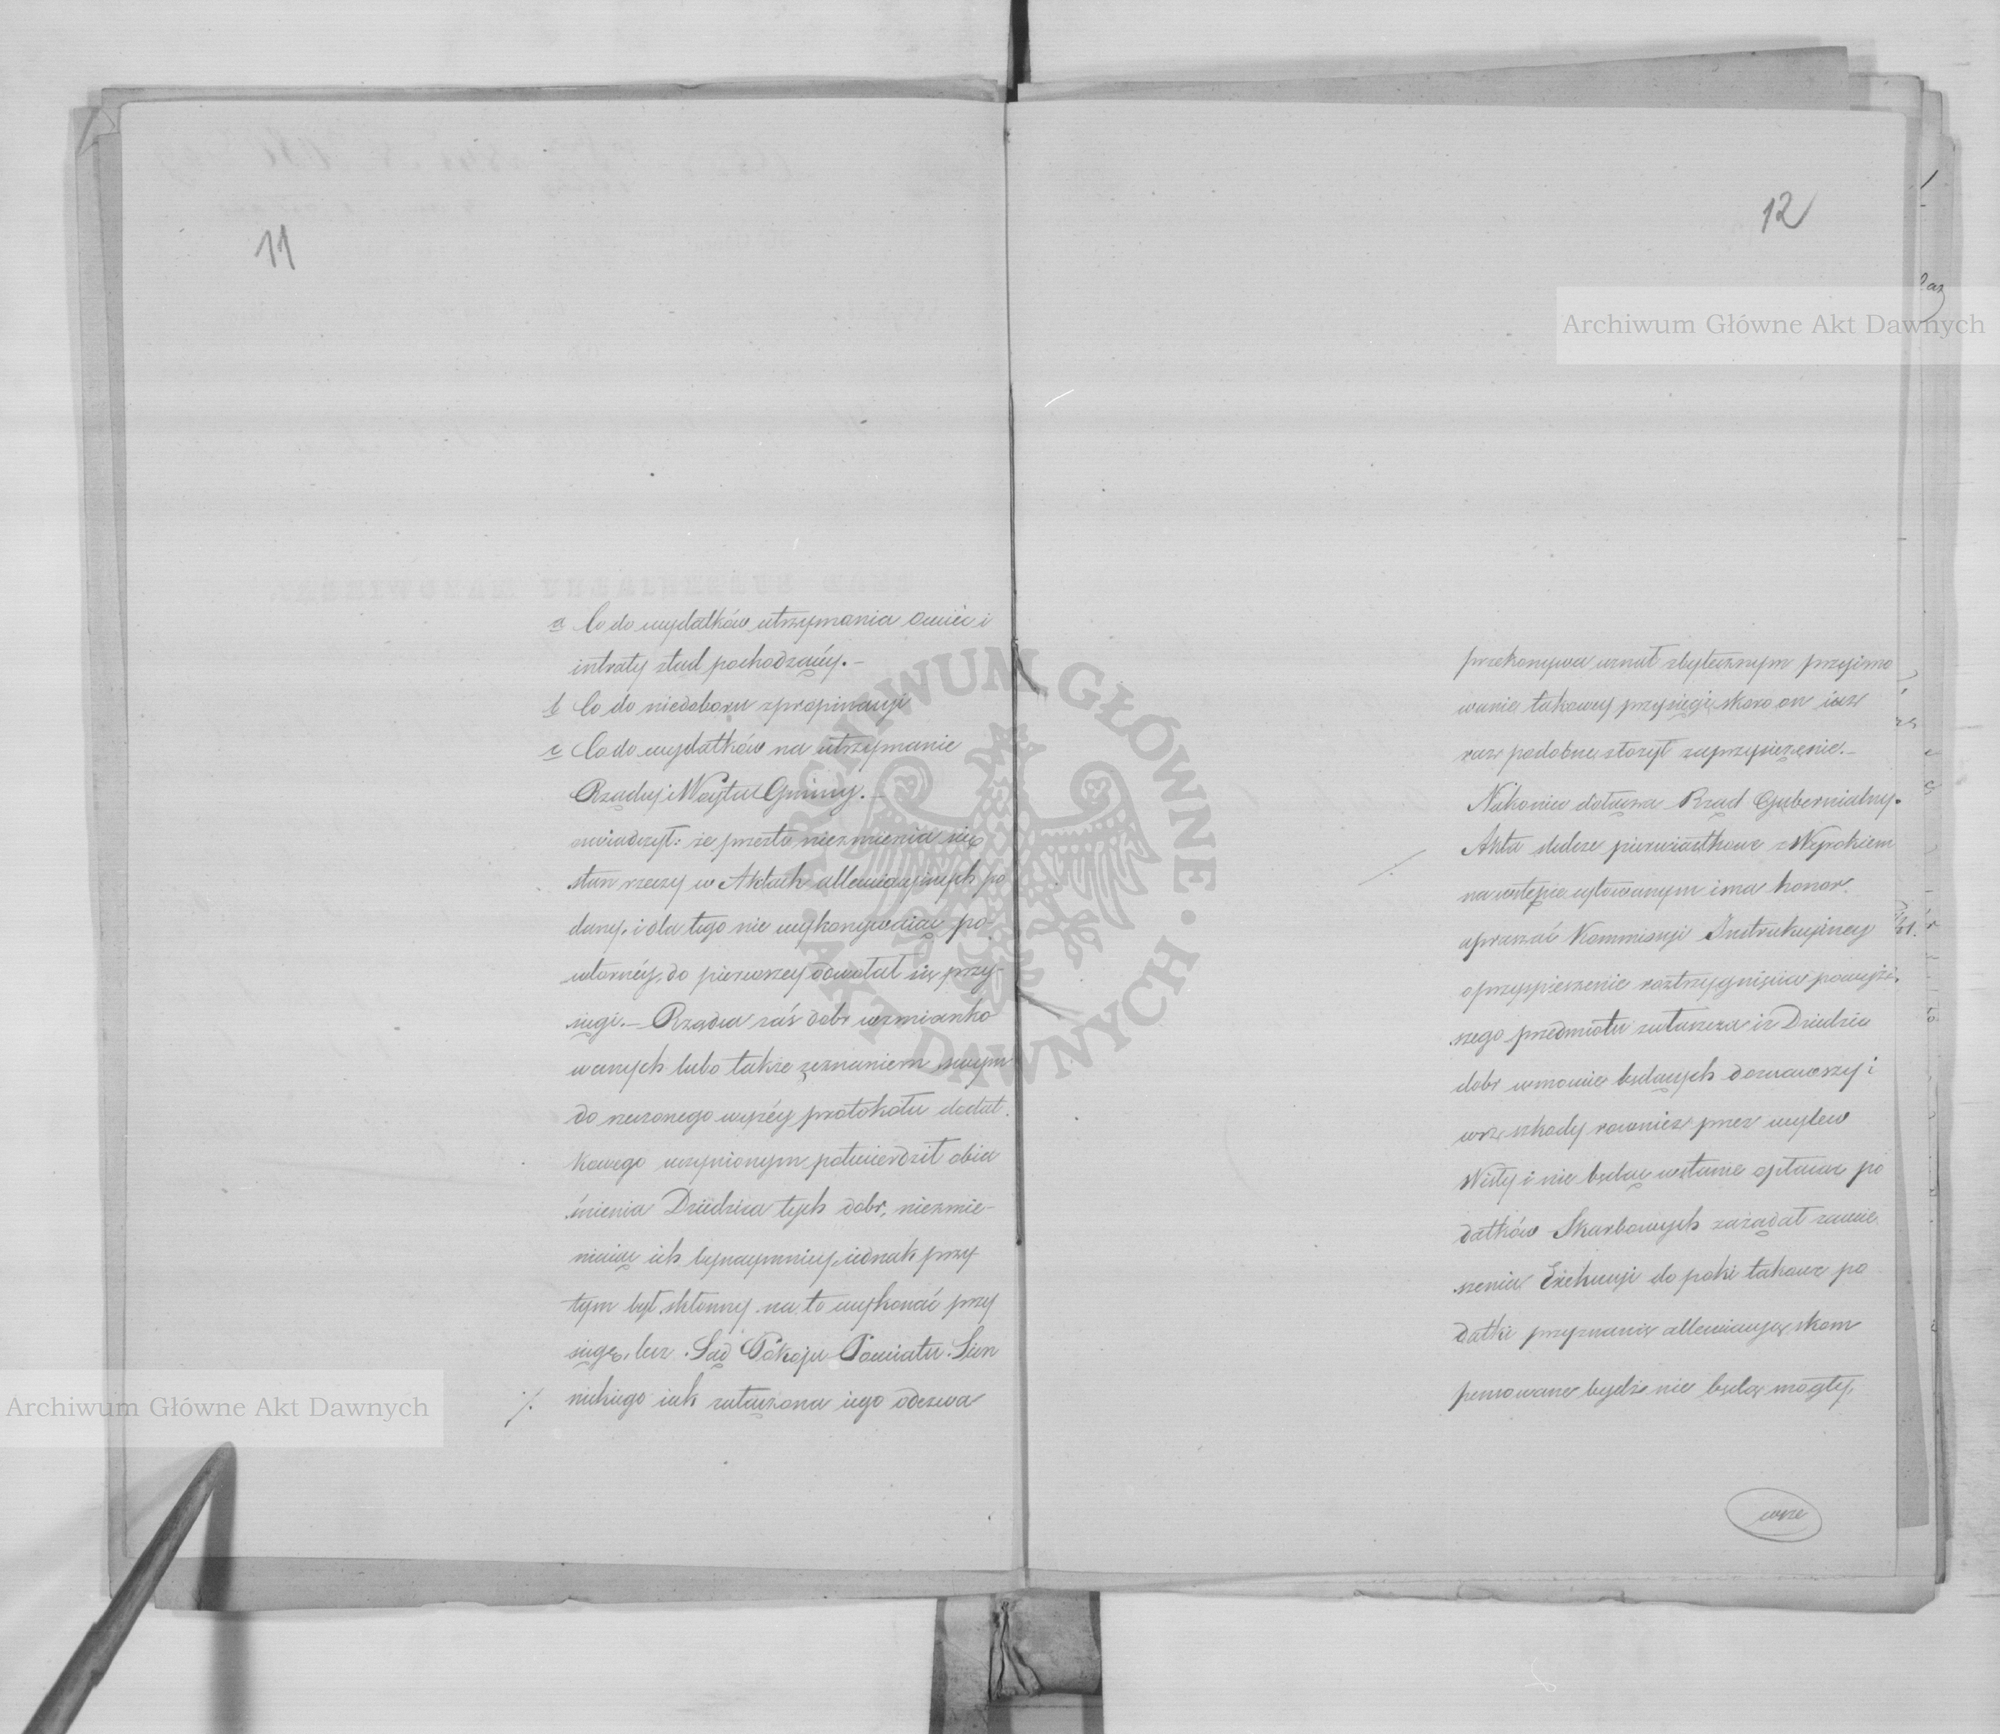 11
a Co do wydatków utrzymania Owiec i
intraty ztąd pochodzącey. —
b Co do niedoboru z propinacyi
c Co do wydatków na utrzymanie
Rządcy i Woyta Gminy. —
oświadczył: że przezto niezmienia się
stan rzeczy w Aktach allewiacyinych po
dany, i dla tego nie wykonywaiąc po
wtornéy, do pierwszey odwołał się przy-
sięgi. — Rządca zaś dobr wzmianko
wanych lubo także zeznaniem swym
do rzeczonego wyżéy protokołu dodat
kowego uczynionym potwierdził obia
śnienia Dziedzica tych dobr, niezmie-
niaiąc ich bynaymniey, iednak przy
tym był skłonny na to wykonać przy
sięgę, lecz Sąd Pokoju Powiatu Sien
nickiego iak załączona iego odezwa
./.
12
przekonywa uznał zbytecznym przyimo
wanie takowey przysięgi, skoro on iuż
raz podobne złożył zaprzysiężenie. —
Nakoniec dołącza Rząd Gubernialny
Akta śledcze pierwiastkowe z Wyrokiem
na wstępie cytowanym i ma honor
upraszać Kommissyi Instrukcyiney
o przyspieszenie roztrzygnięcia powyż-
szego przedmiotu zwłaszcza iż Dziedzic
dobr w mowie będących doznawszy i
w r. z. szkody rownież przez wylew
Wisły i nie będąc wstanie opłacać po
datków Skarbowych zażądał zawie
szenia Exekucyi do poki takowe po
datki przyznaną allewiacyą skom
pensowane bydź nie będą mogły.
./.
wrze
Archiwum Główne Akt Dawnych
Archiwum Główne Akt Dawnych
ARCHIWUM GŁÓWNE
AKT DAWNYCH